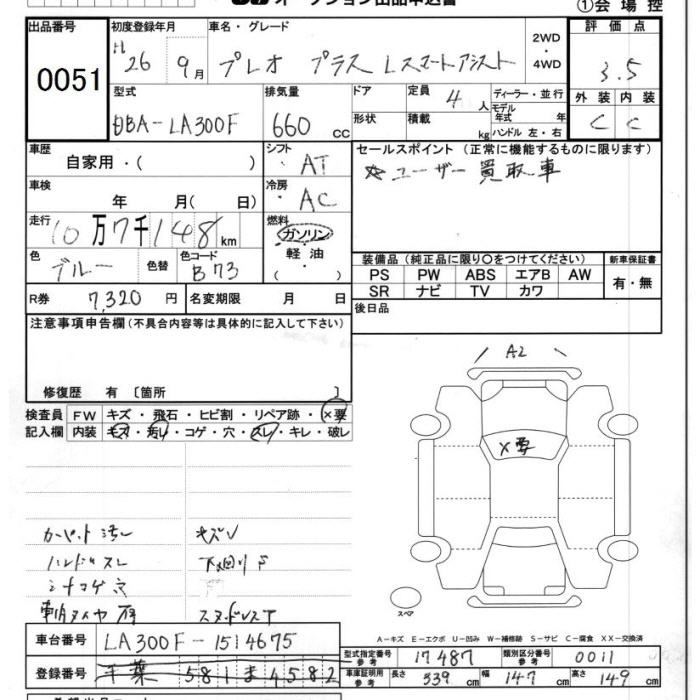 オークション出品申込書
①会場控
出品番号 初度登録年月 車名・グレード 2WD・4WD 評価点
0051 H 26 9月 プレオ プラス Lスマートアシスト 3.5
型式 排気量 ドア 定員 4人 ディーラー・並行 外装 内装
DBA-LA300F 660cc 形状 積載 kg モデル年式 年 ハンドル 左・右 C C
車歴 自家用・( ) シフト・AT セールスポイント (正常に機能するものに限ります)
車検 年 月( 日) 冷房・AC ☆ユーザー買取車
走行 10万7千148km 燃料 ガソリン 軽油・( )
色 ブルー 色替 色コード B73 装備品 (純正品に限り〇をつけてください) 新車保証書
PS PW ABS エアB AW 有・無
R券 7,320円 名変期限 月 日 SR ナビ TV カワ
注意事項申告欄 (不具合内容等は具体的に記入して下さい) 後日品
修復歴 有 [箇所 ]
A2
検査員 FW キズ・飛石・ヒビ割・リペア跡・×要
記入欄 内装 キズ・汚レ・コゲ・穴・スレ・キレ・破レ
×要
カーペット汚レ キズ
ハンドルスレ 下廻り
シートコゲ穴
スペア
A-キズ E-エクボ U-凹み W-補修跡 S-サビ C-腐食 XX-交換済
車台番号 LA300F-1514675
型式指定番号 参考 17487 類別区分番号 参考 0011
登録番号 千葉 581 ま 4582
車庫証明用 参考 長さ 339cm 幅 147cm 高さ 149cm